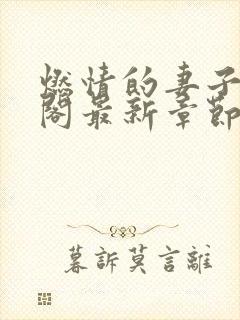 燃情的妻子
阁最新章節
暮訴莫言離